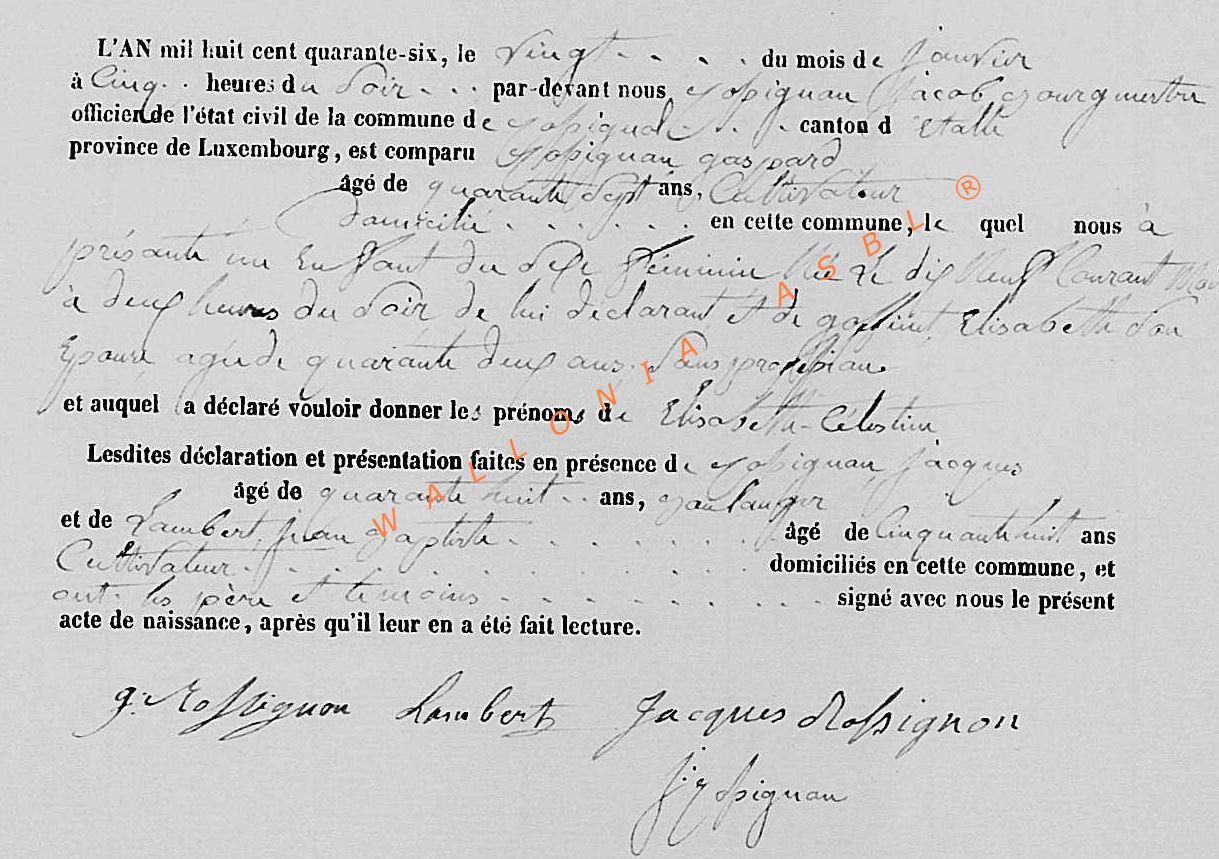 L'AN mil huit cent quarante-six, le vingt . . . du mois de janvier
à Cinq . . heures du Soir . . . par-devant nous Rossignon Jacob Bourgmestre
officier de l'état civil de la commune de Rossignol . . . canton d'Etalle
province de Luxembourg, est comparu Rossignon gaspard
âgé de quarante Sept ans, Cultivateur
domicilié . . . . . . en cette commune, lequel nous à
présenté un Enfant du Sexe féminin Née le dix Neuf Courant
à deux heures du Soir de lui déclarant et de Elisabeth Son
Epouse agée de quarante deux ans. Sans profession.
et auquel a déclaré vouloir donner les prénoms de Elisabeth-Celestine
Lesdites déclaration et présentation faites en présence de Rossignon Jacques
âgé de quarante huit . . ans, Boulanger
et de Lambert, jean Baptiste . . . . . . . âgé de Cinquante huit ans
Cultivateur . . . . . . . . . . . . domiciliés en cette commune, et
ont les père et temoins . . . . . . . . . signé avec nous le présent
acte de naissance, après qu'il leur en a été fait lecture.
g. Rossignon Lambert Jacques Rossignon
J Rossignon
WALLONIA ASBL ®